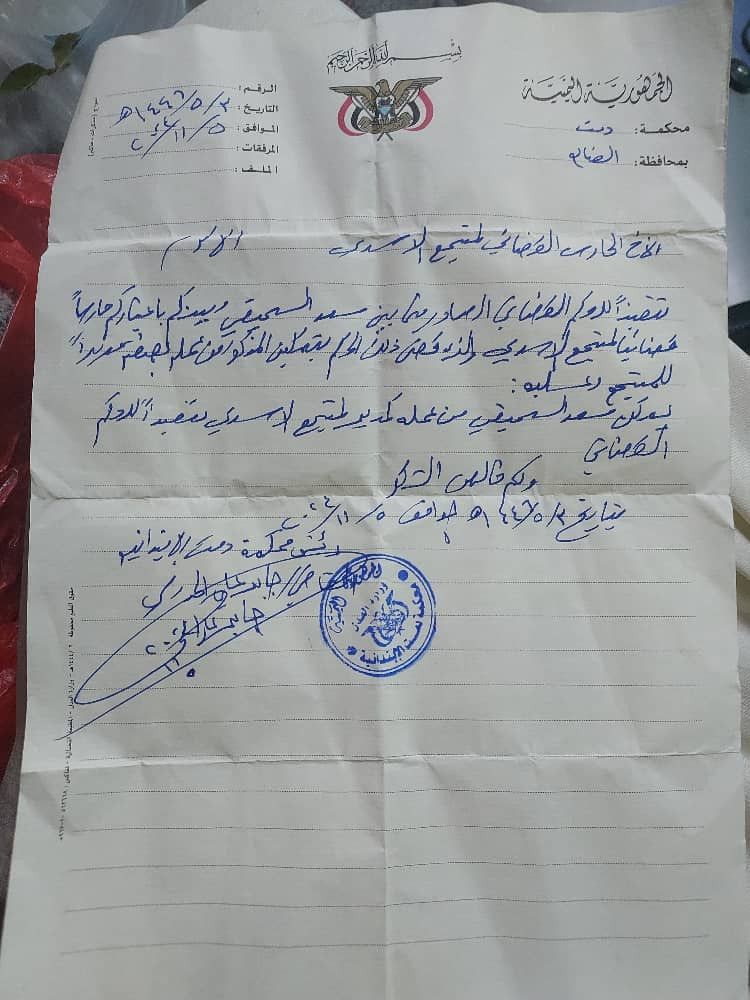 بسم الله الرحمن الرحيم
الجمهورية اليمنية
محكمة: دمت
بمحافظة: الضالع
الرقم:
التاريخ: ٣/٥/١٤٤٦هـ
الموافق: ٥/١١/٢٠٢٤
المرفقات:
الملف:
الأخ الحارس القضائي لمنتجع الاسدي الاكرم
تنفيذاً للحكم القضائي الصادر بين سعد السميقي وبينكم باعتباركم حارساً
قضائياً لمنتجع الاسدي والذي قضى ذلك الحكم بتمكين المذكور من عمله بصفته مديراً
للمنتجع وعليه:
يمكن سعد السميقي من عمله كمدير لمنتجع الاسدي تنفيذاً للحكم
القضائي
ولكم خالص الشكر
بتاريخ ٣/٥/١٤٤٦هـ الموافق ٥/١١/٢٠٢٤
رئيس محكمة دمت الابتدائية
الجمهورية اليمنية
وزارة العدل
محكمة دمت الابتدائية